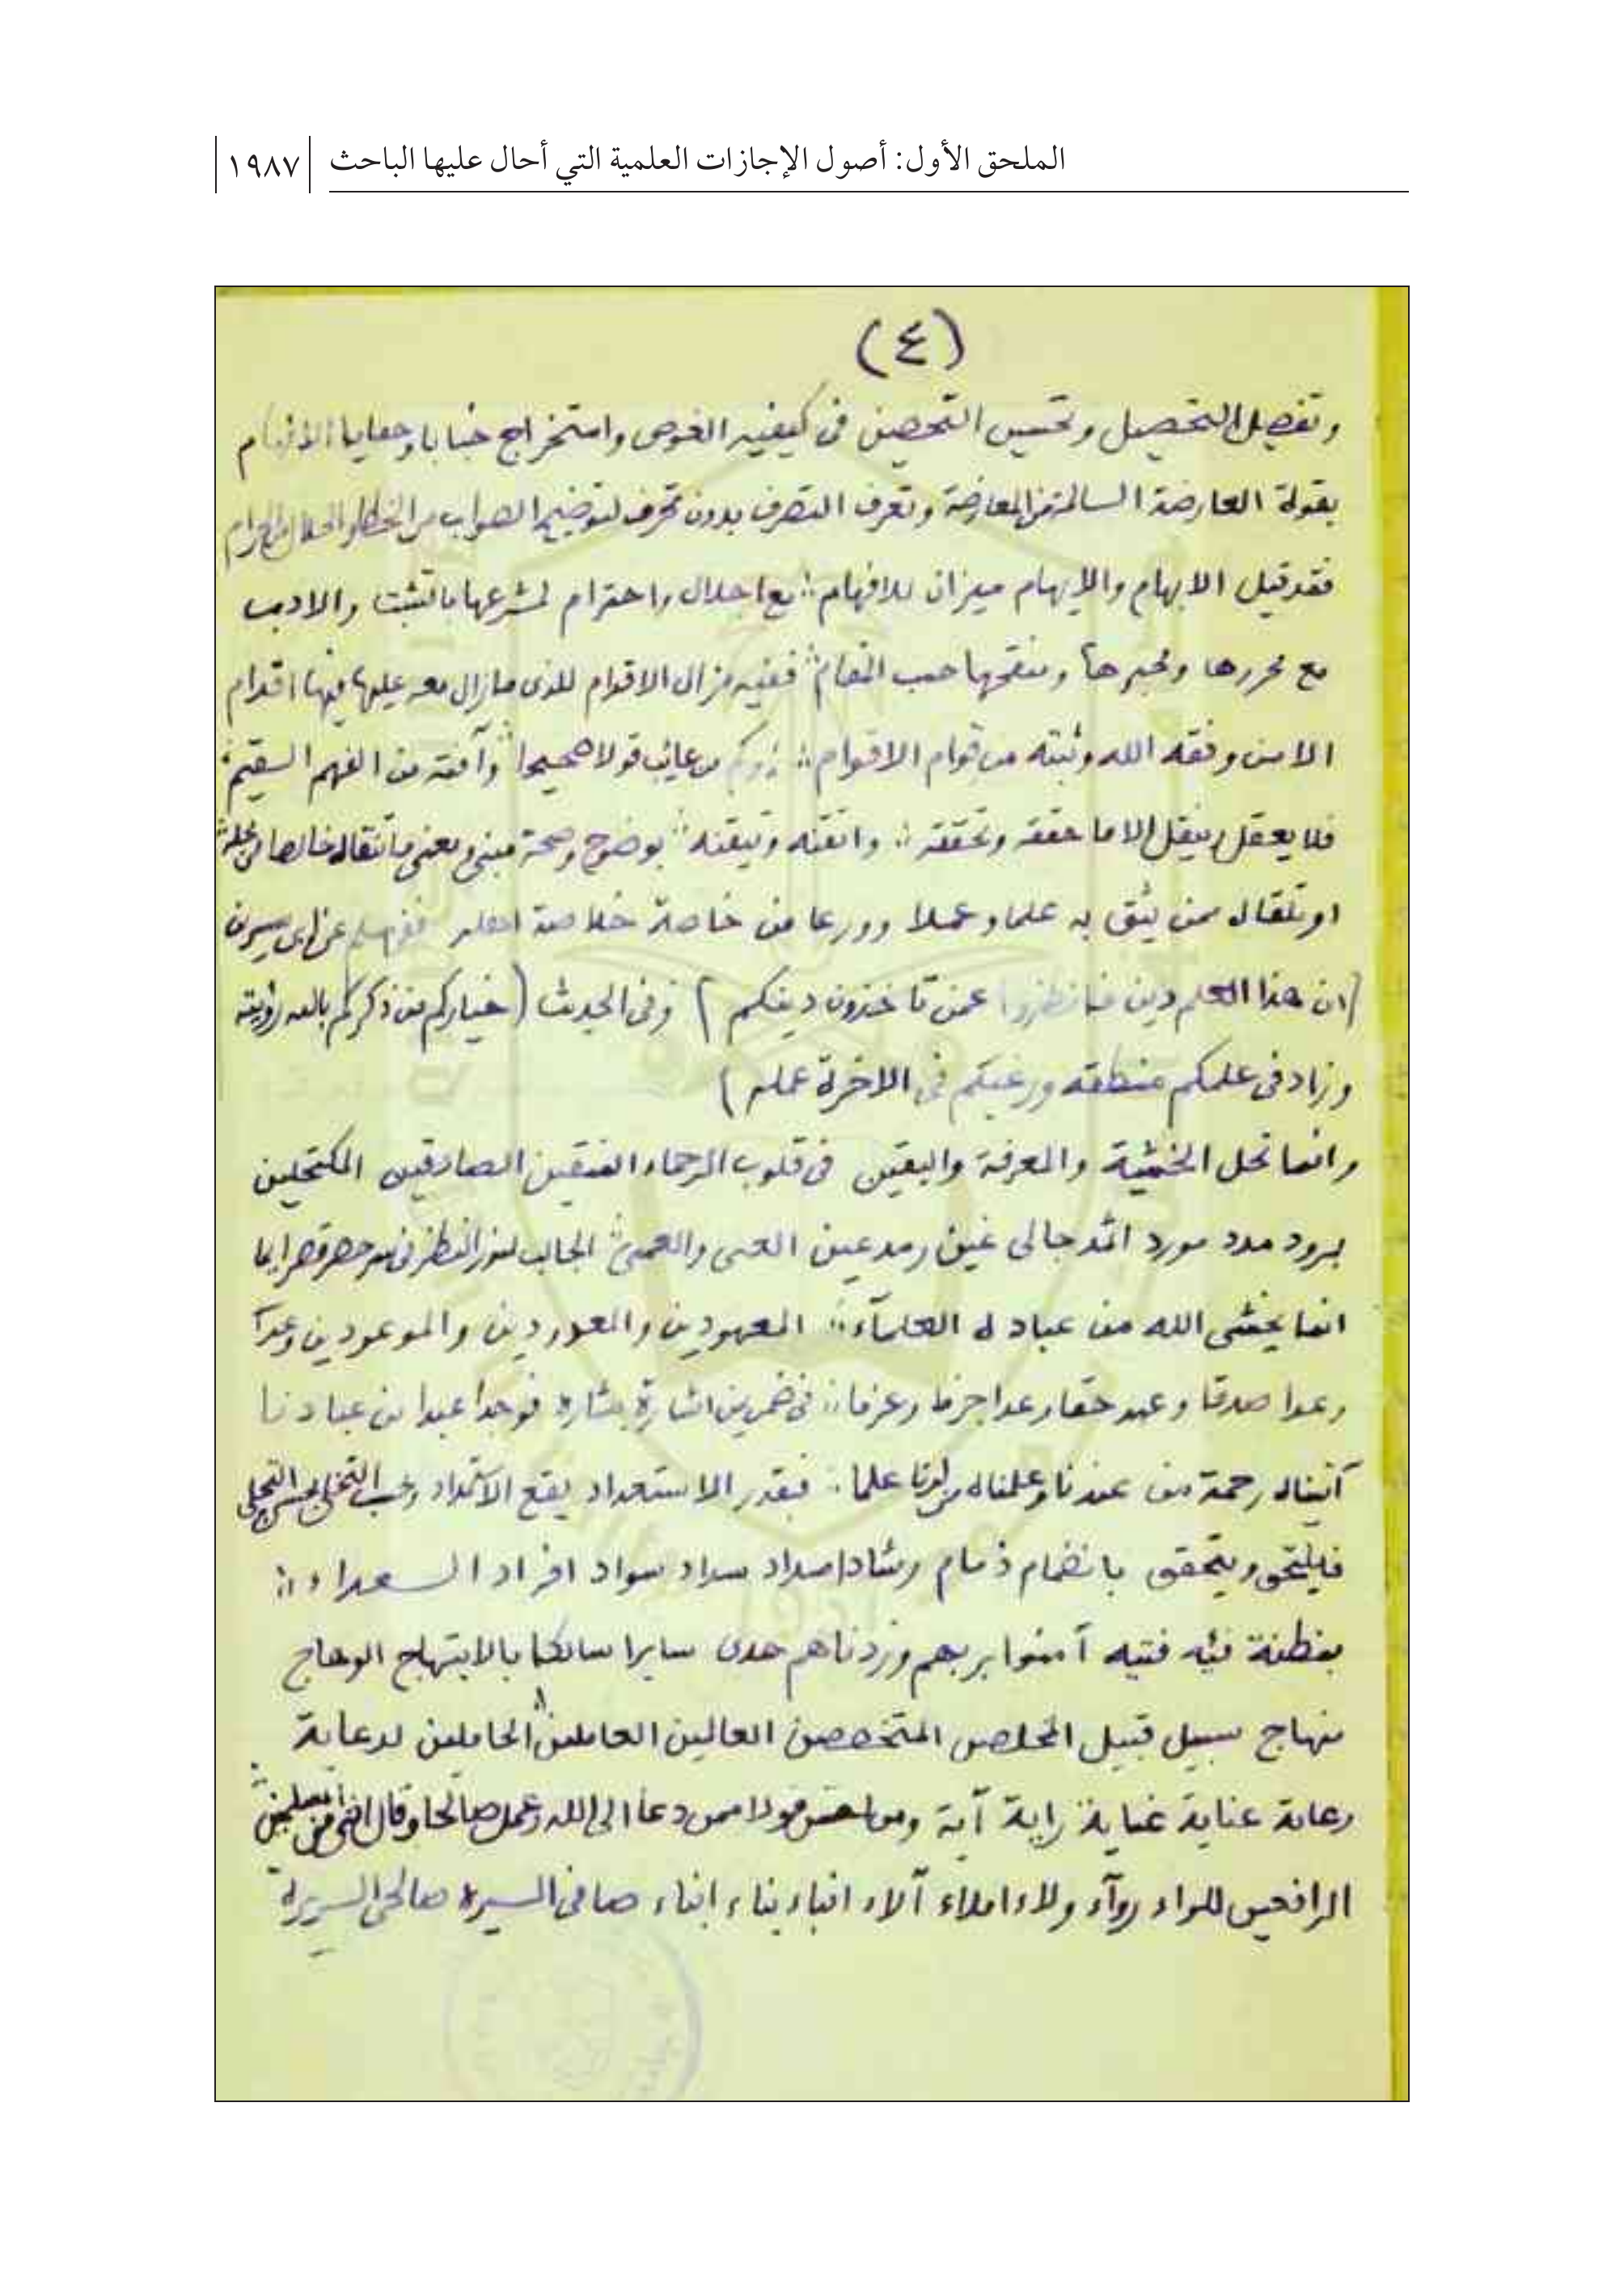 الملحق الأول: أصول الإجازات العلمية التي أحال عليها الباحث ١٩٨٧
(٤)
وتفصيل التحصيل وتحسين التحصين فى كيفيه الغوص واستخراج خبايا وخفايا
بقولة العارضة السالمة من المعارضة وتعرف التصرف بدون تحرف لتوضيح الصواب من الخطا والحلال والحرام
فقد قيل الابهام والايهام ميزان للافهام مع اجلال واحترام لمشرعها بالتثبت والادب
مع محررها ومحبرها ومنقحها حسب المقام ففيه مزال الاقوام للذى مازال معه عليها اقدام
الامن وفقه الله وثبته من قوام الاقوام وكم من عائب قولا صحيحا وآفته من الفهم السقيم
فلا يعقل وينقل الا ما حققه وتحققه واتقنه وتيقنه بوضوح وصحة مبنى ومعنى
او تلقاه ممن يثق به علما وعملا وورعا من خاصة خلاصة اهله ففى مسلم عن ابن سيرين
(ان هذا العلم دين فانظروا عمن تاخذون دينكم) وفى الحديث (خياركم من ذكركم بالله رؤيته
وزاد فى علمكم منطقه ورغبكم فى الاخرة عمله)
وانما تحل الخشية والمعرفة واليقين فى قلوب الرحماء المتقين الصادقين المكتحلين
برود مدد مورد اثمد جالى غين رمد عين العمى والعمى الجالب لنور النظر فى
انما يخشى الله من عباده العلمآء المعهودين والمعدودين والموعودين وعدا
وعدا صدقا وعهد حقا وعدا جزما وعزما فى ضمن اشارة بشارة فوجدا عبدا من عبادنا
آتيناه رحمة من عندنا وعلمناه من لدنا علما فبقدر الاستعداد يقع الامداد وبحسب التخلى يحسن التجلى
فيلتحق ويتحقق بانضمام ذمام رشاد امداد سداد سواد افراد السعداء
بفطنة فئه فتيه آمنوا بربهم وزدناهم هدى سايرا سالكا بالابتهاج الوهاج
منهاج سبيل قبيل المخلصين المتخصصين العالمين العاملين الحاملين لدعاية
رعاية عناية غياية راية آية ومن احسن قولا ممن دعا الى الله وعمل صالحا وقال اننى من المسلمين
الرافعين للواء روآء ولاء املاء آلاء انباء بناء ابناء صافى السيره صالحى السريرة